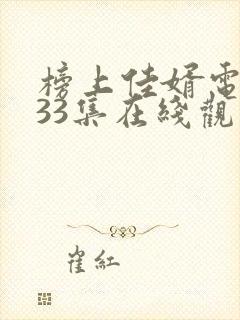 榜上佳婿電
33集在綫觀
崔紅